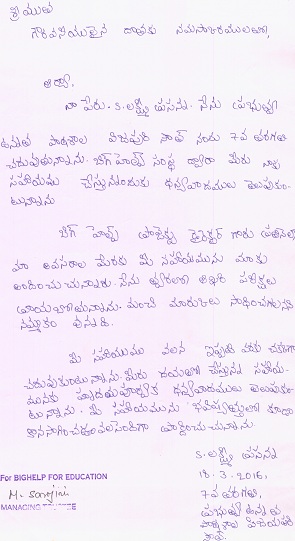 శ్రీయుత
గౌరవనీయులైన దాతకు నమస్కారములతో,
ఆర్యా,
నా పేరు. S. లక్ష్మీ ప్రసన్న. నేను ప్రభుత్వ
ఉన్నత పాఠశాల విజయపురి సౌత్ నందు 7వ తరగతి
చదువుతున్నాను. బిగ్ హెల్ప్ సంస్థ ద్వారా మీరు నాకు
సహాయము చేస్తున్నందుకు ధన్యవాదములు తెలుపుకుం-
టున్నాను
బిగ్ హెల్ప్ ప్రాజెక్టు డైరెక్టర్ గారు ప్రతినెలా
మా అవసరాల మేరకు మీ సహాయమును మాకు
అందించుచున్నారు. నేను త్వరలో ఆఖరి పరీక్షలు
వ్రాయబోతున్నాను. మంచి మార్కులు సాధించగలనన్న
నమ్మకం వున్నది.
మీ సహాయము వలన ఇప్పుడు నేను చక్కగా
చదువుకుంటున్నాను. మీరు దయతో చేస్తున్న సహాయ-
మునకు హృదయపూర్వక ధన్యవాదములు తెలుపుకుం-
టున్నాను. మీ సహాయమును భవిష్యత్తులో కూడా
కొనసాగించవలసిందిగా ప్రార్థించుచున్నాను.
S. లక్ష్మీ ప్రసన్న
18.3.2016,
7వ తరగతి,
ప్రభుత్వ ఉన్నత
పాఠశాల విజయపురి
సౌత్.
For BIGHELP FOR EDUCATION
M. Sarojini
MANAGING TRUSTEE